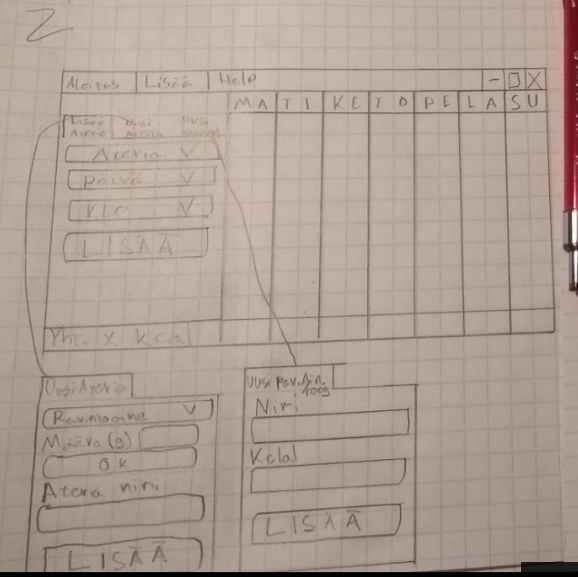 2
Aloitus Lisää Help - X
MA TI KE TO PE LA SU
Lisää Uusi Uusi
Ateria Ateria
Ateria V
Päivä V
Klo V
LISÄÄ
Yht. X kcal
Uusi Ateria
Ravintoaine V
Määrä (g)
OK
Ateria nimi
LISÄÄ
Uusi Rav.Ain.
Nimi
LISÄÄ